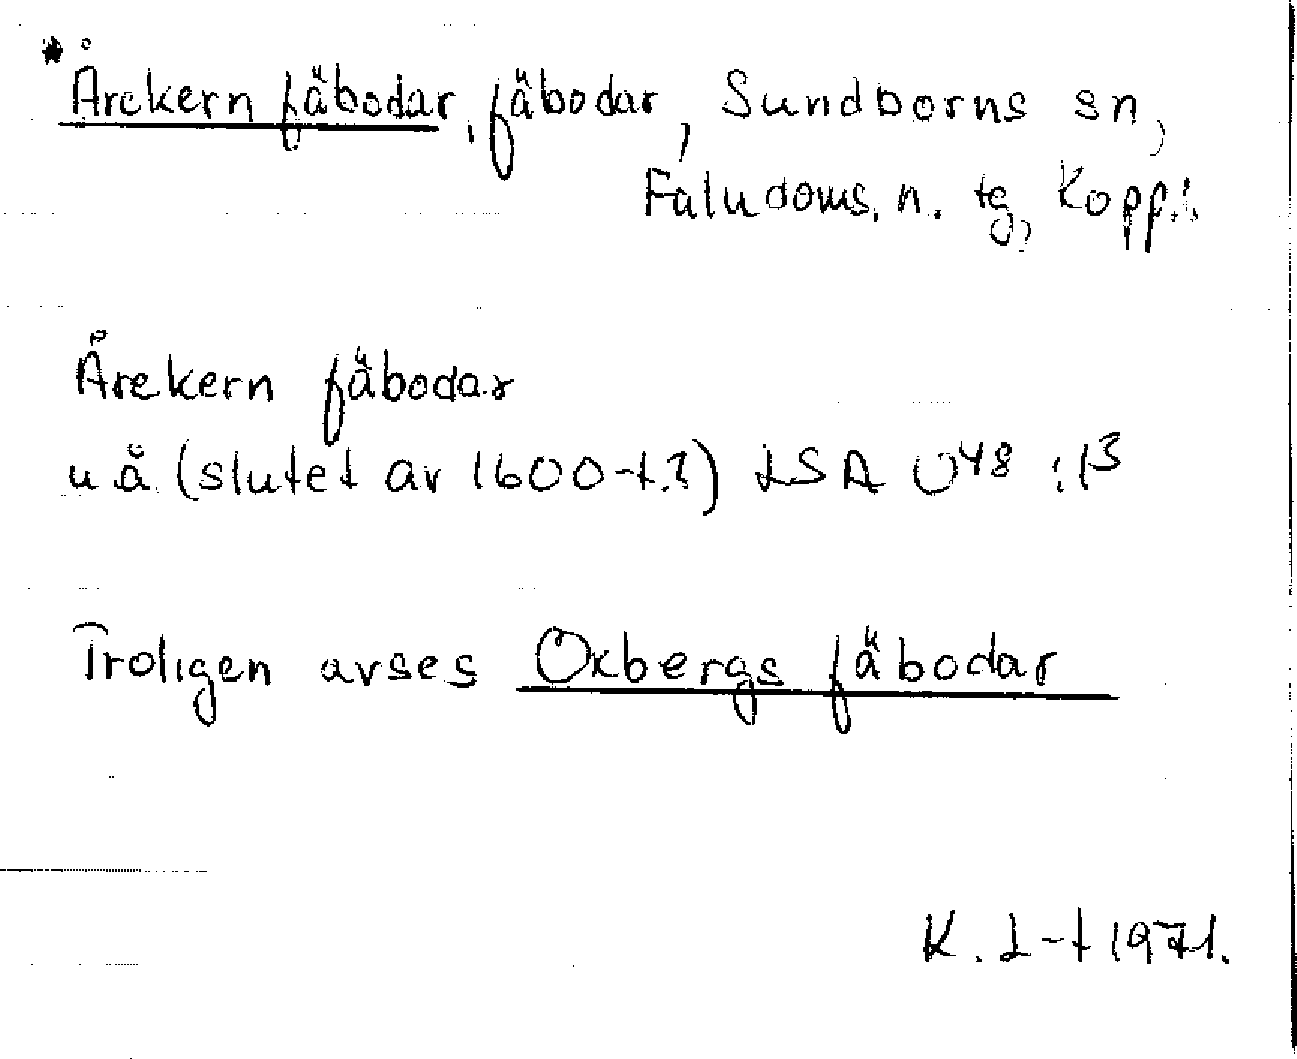 *Årekern fäbodar, fäbodar, Sundborns sn,
Faludoms. n. tg, Kopp.l.
Årekern fäbodar
u å (slutet av 1600-t.?) LSA U48:13
Troligen avses Oxbergs fäbodar
K. L-t 1971.